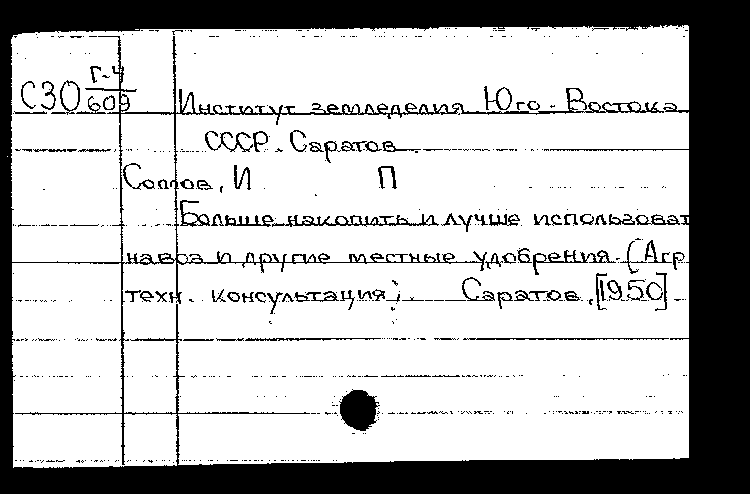 Г-4
СЗО 609
Институт земледелия Юго-Востока
СССР. Саратов
И П
Больше накопить и лучше использоват
навоз и другие местные удобрения. (Агр
техн. консультация). Саратов, [1950]